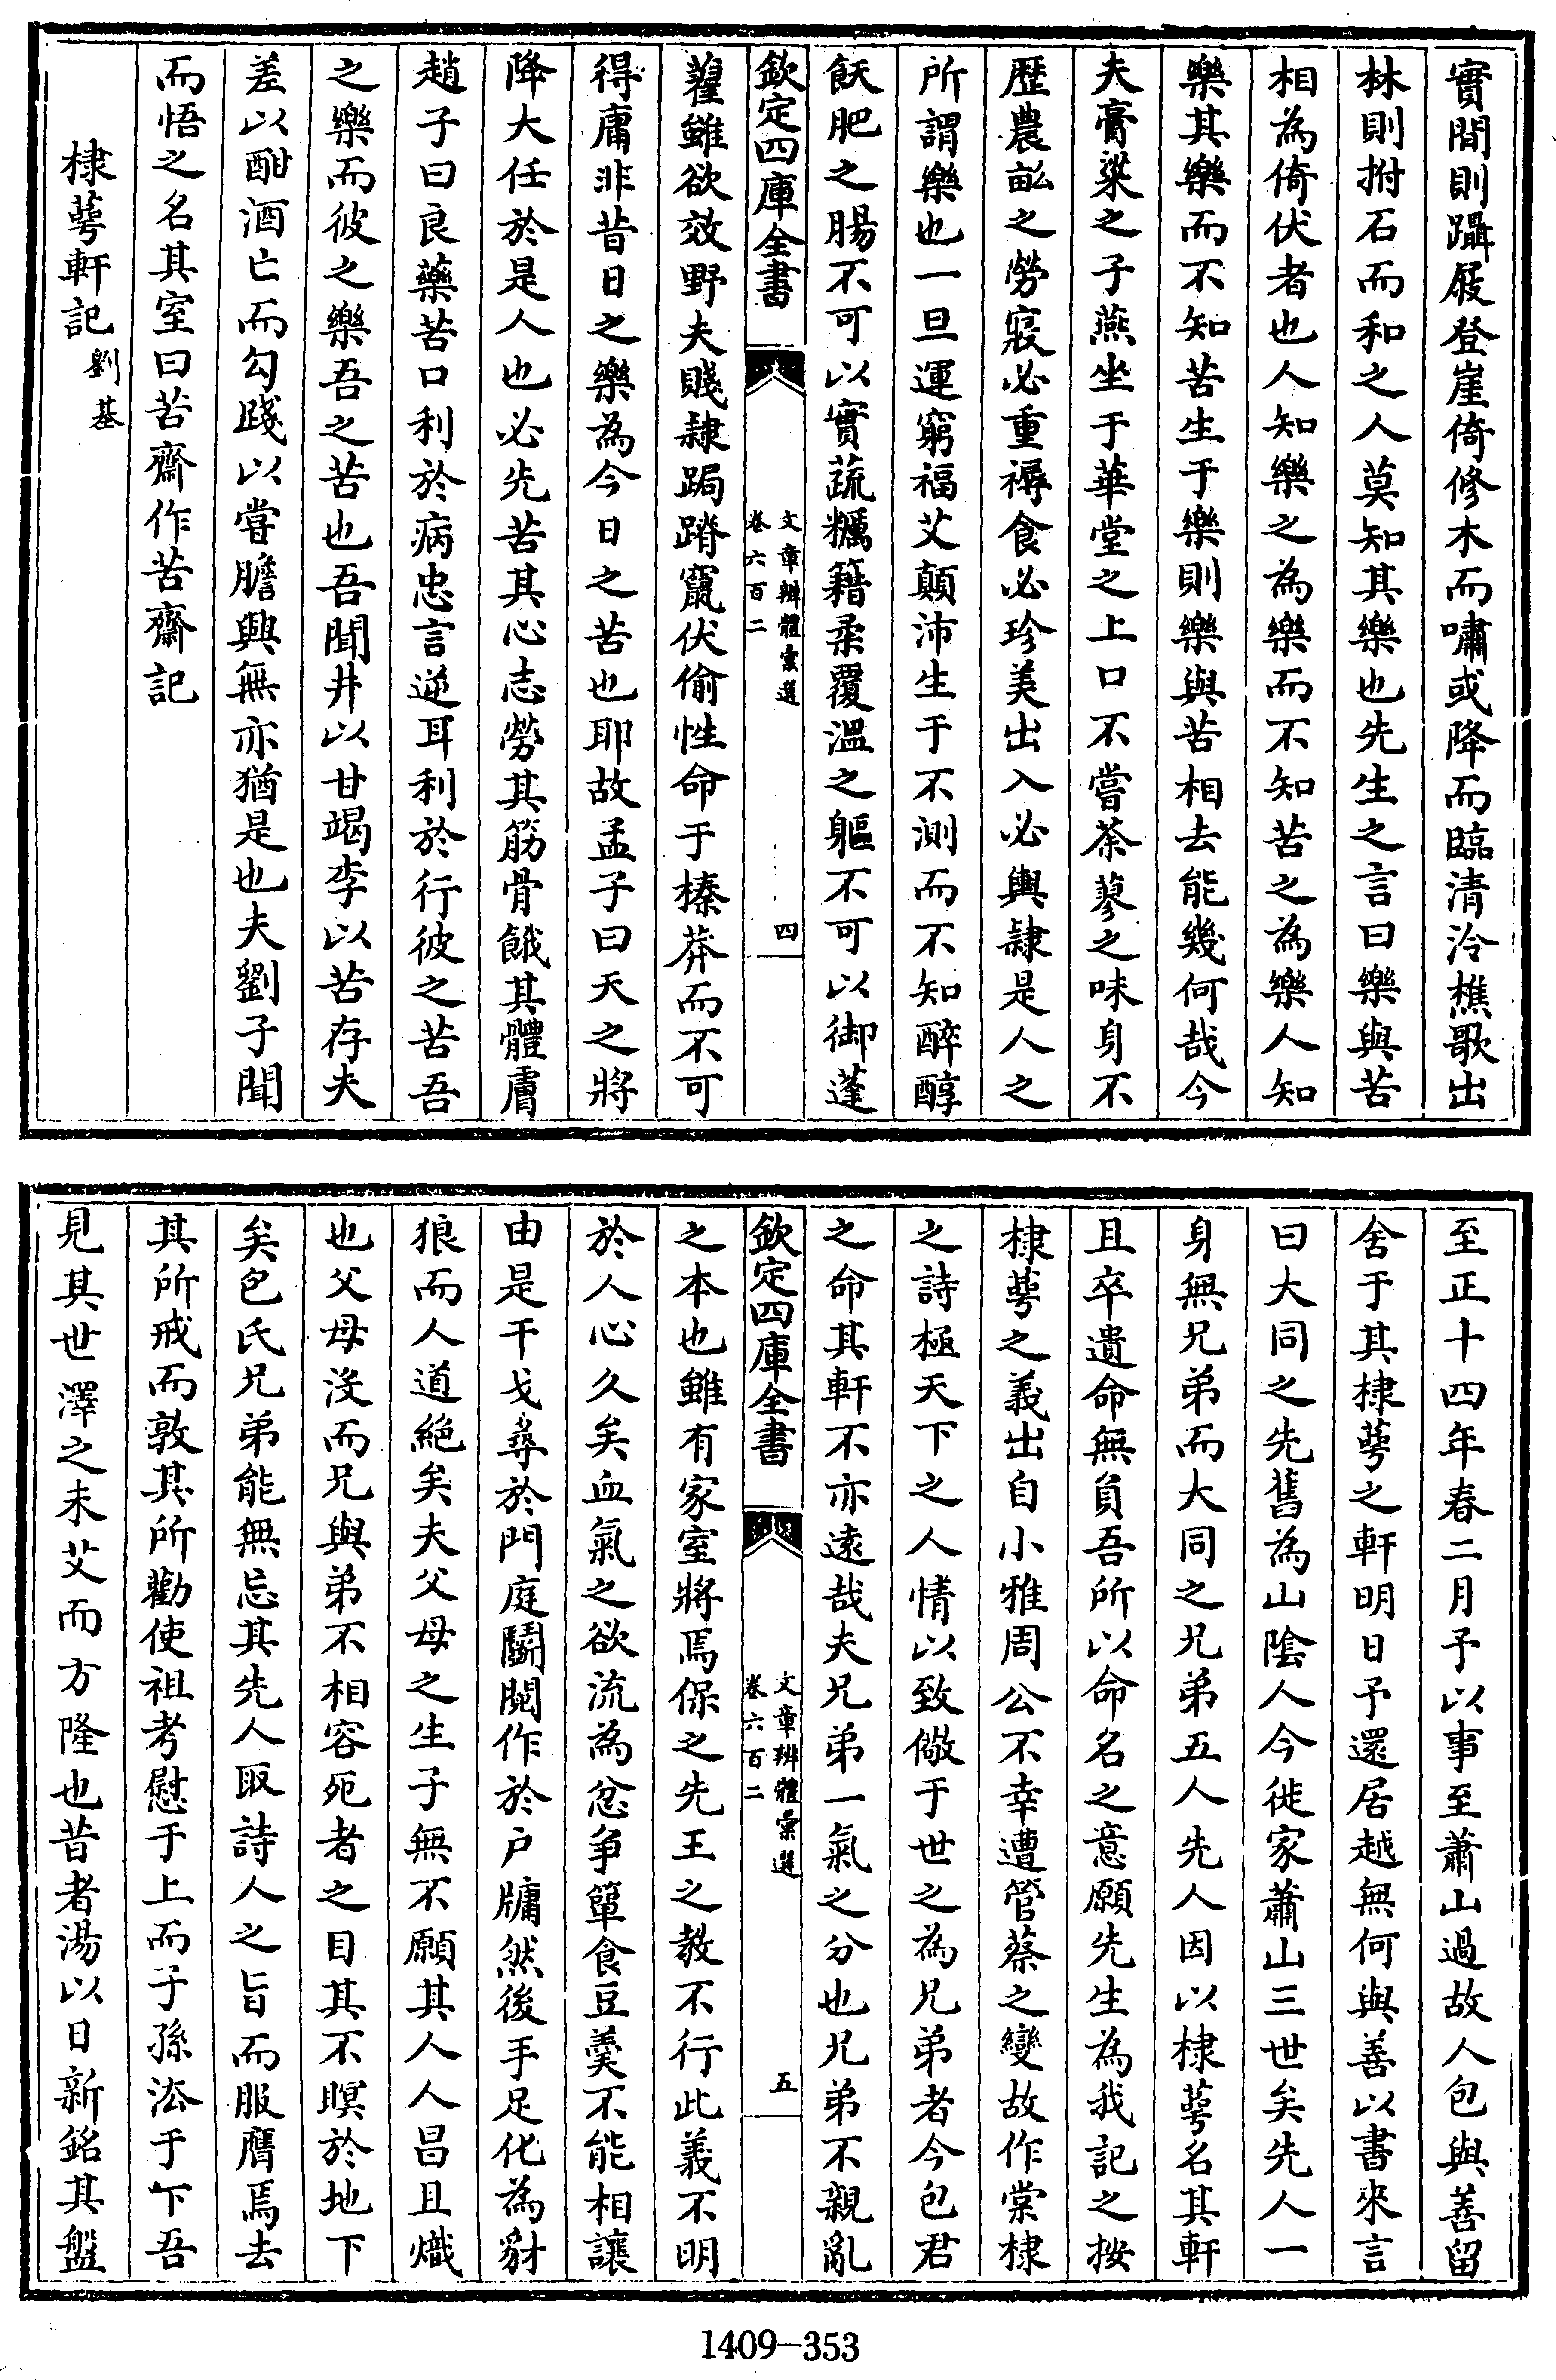 實間則躡屐登崖倚修木而嘯或降而臨清泠樵歌出
林則拊石而和之人莫知其樂也先生之言曰樂與苦
相為倚伏者也人知樂之為樂而不知苦之為樂人知
樂其樂而不知苦生于樂則樂與苦相去能幾何哉今
夫膏粱之子燕坐于華堂之上口不嘗荼蓼之味身不
歷農畝之勞寢必重褥食必珍美出入必輿隸是人之
所謂樂也一旦運窮福艾顛沛生于不測而不知醉醇
飫肥之腸不可以實蔬糲籍柔覆溫之軀不可以御蓬
欽定四庫全書
文章辨體彙選
卷六百二
四
藋雖欲效野夫賤隸跼蹐竄伏偷性命于榛莽而不可
得庸非昔日之樂為今日之苦也耶故孟子曰天之將
降大任於是人也必先苦其心志勞其筋骨餓其體膚
趙子曰良藥苦口利於病忠言逆耳利於行彼之苦吾
之樂而彼之樂吾之苦也吾聞井以甘竭李以苦存夫
差以酣酒亡而勾踐以嘗膽興無亦猶是也夫劉子聞
而悟之名其室曰苦齋作苦齋記
棣萼軒記 劉基
至正十四年春二月予以事至蕭山過故人包與善留
舍于其棣萼之軒明日予還居越無何與善以書來言
曰大同之先舊為山陰人今徙家蕭山三世矣先人一
身無兄弟而大同之兄弟五人先人因以棣萼名其軒
且卒遺命無負吾所以命名之意願先生為我記之按
棣萼之義出自小雅周公不幸遭管蔡之變故作棠棣
之詩極天下之人情以致儆于世之為兄弟者今包君
之命其軒不亦遠哉夫兄弟一氣之分也兄弟不親亂
欽定四庫全書
文章辨體彙選
卷六百二
五
之本也雖有家室將焉保之先王之教不行此義不明
於人心久矣血氣之欲流為忿爭簞食豆羹不能相讓
由是干戈尋於門庭鬬鬩作於戶牖然後手足化為豺
狼而人道絕矣夫父母之生子無不願其人人昌且熾
也父母沒而兄與弟不相容死者之目其不瞑於地下
矣包氏兄弟能無忘其先人取詩人之旨而服膺焉去
其所戒而敦其所勸使祖考慰于上而子孫法于下吾
見其世澤之未艾而方隆也昔者湯以日新銘其盤
1409—353